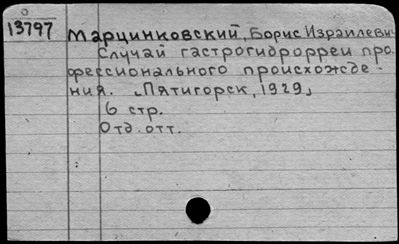 13797
Марцинковский, Борис Израилевич
Случай гастрогидрорреи про-
фессионального происхожде-
ния. [Пятигорск, 1929]
6 стр.
Отд. отт.